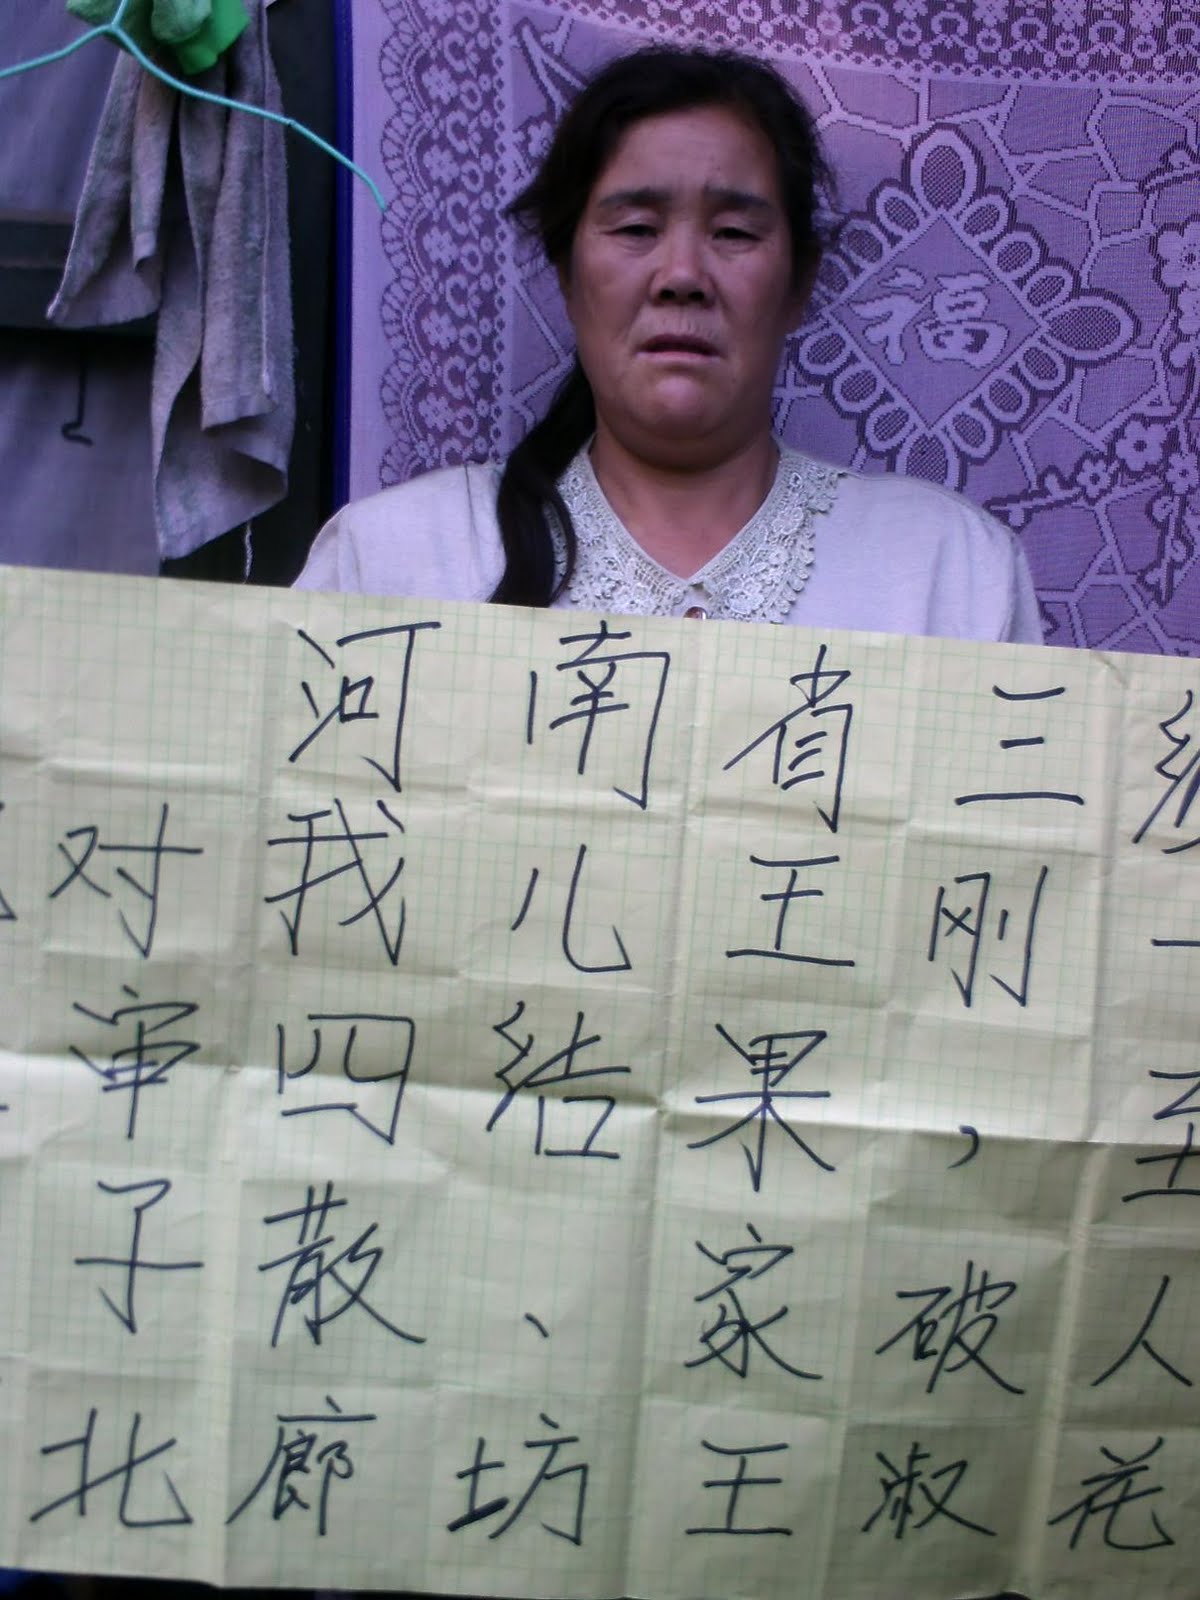 福
河南省三级
对我儿王刚一
审四结果,至
子散、家破人
北廊坊王淑花